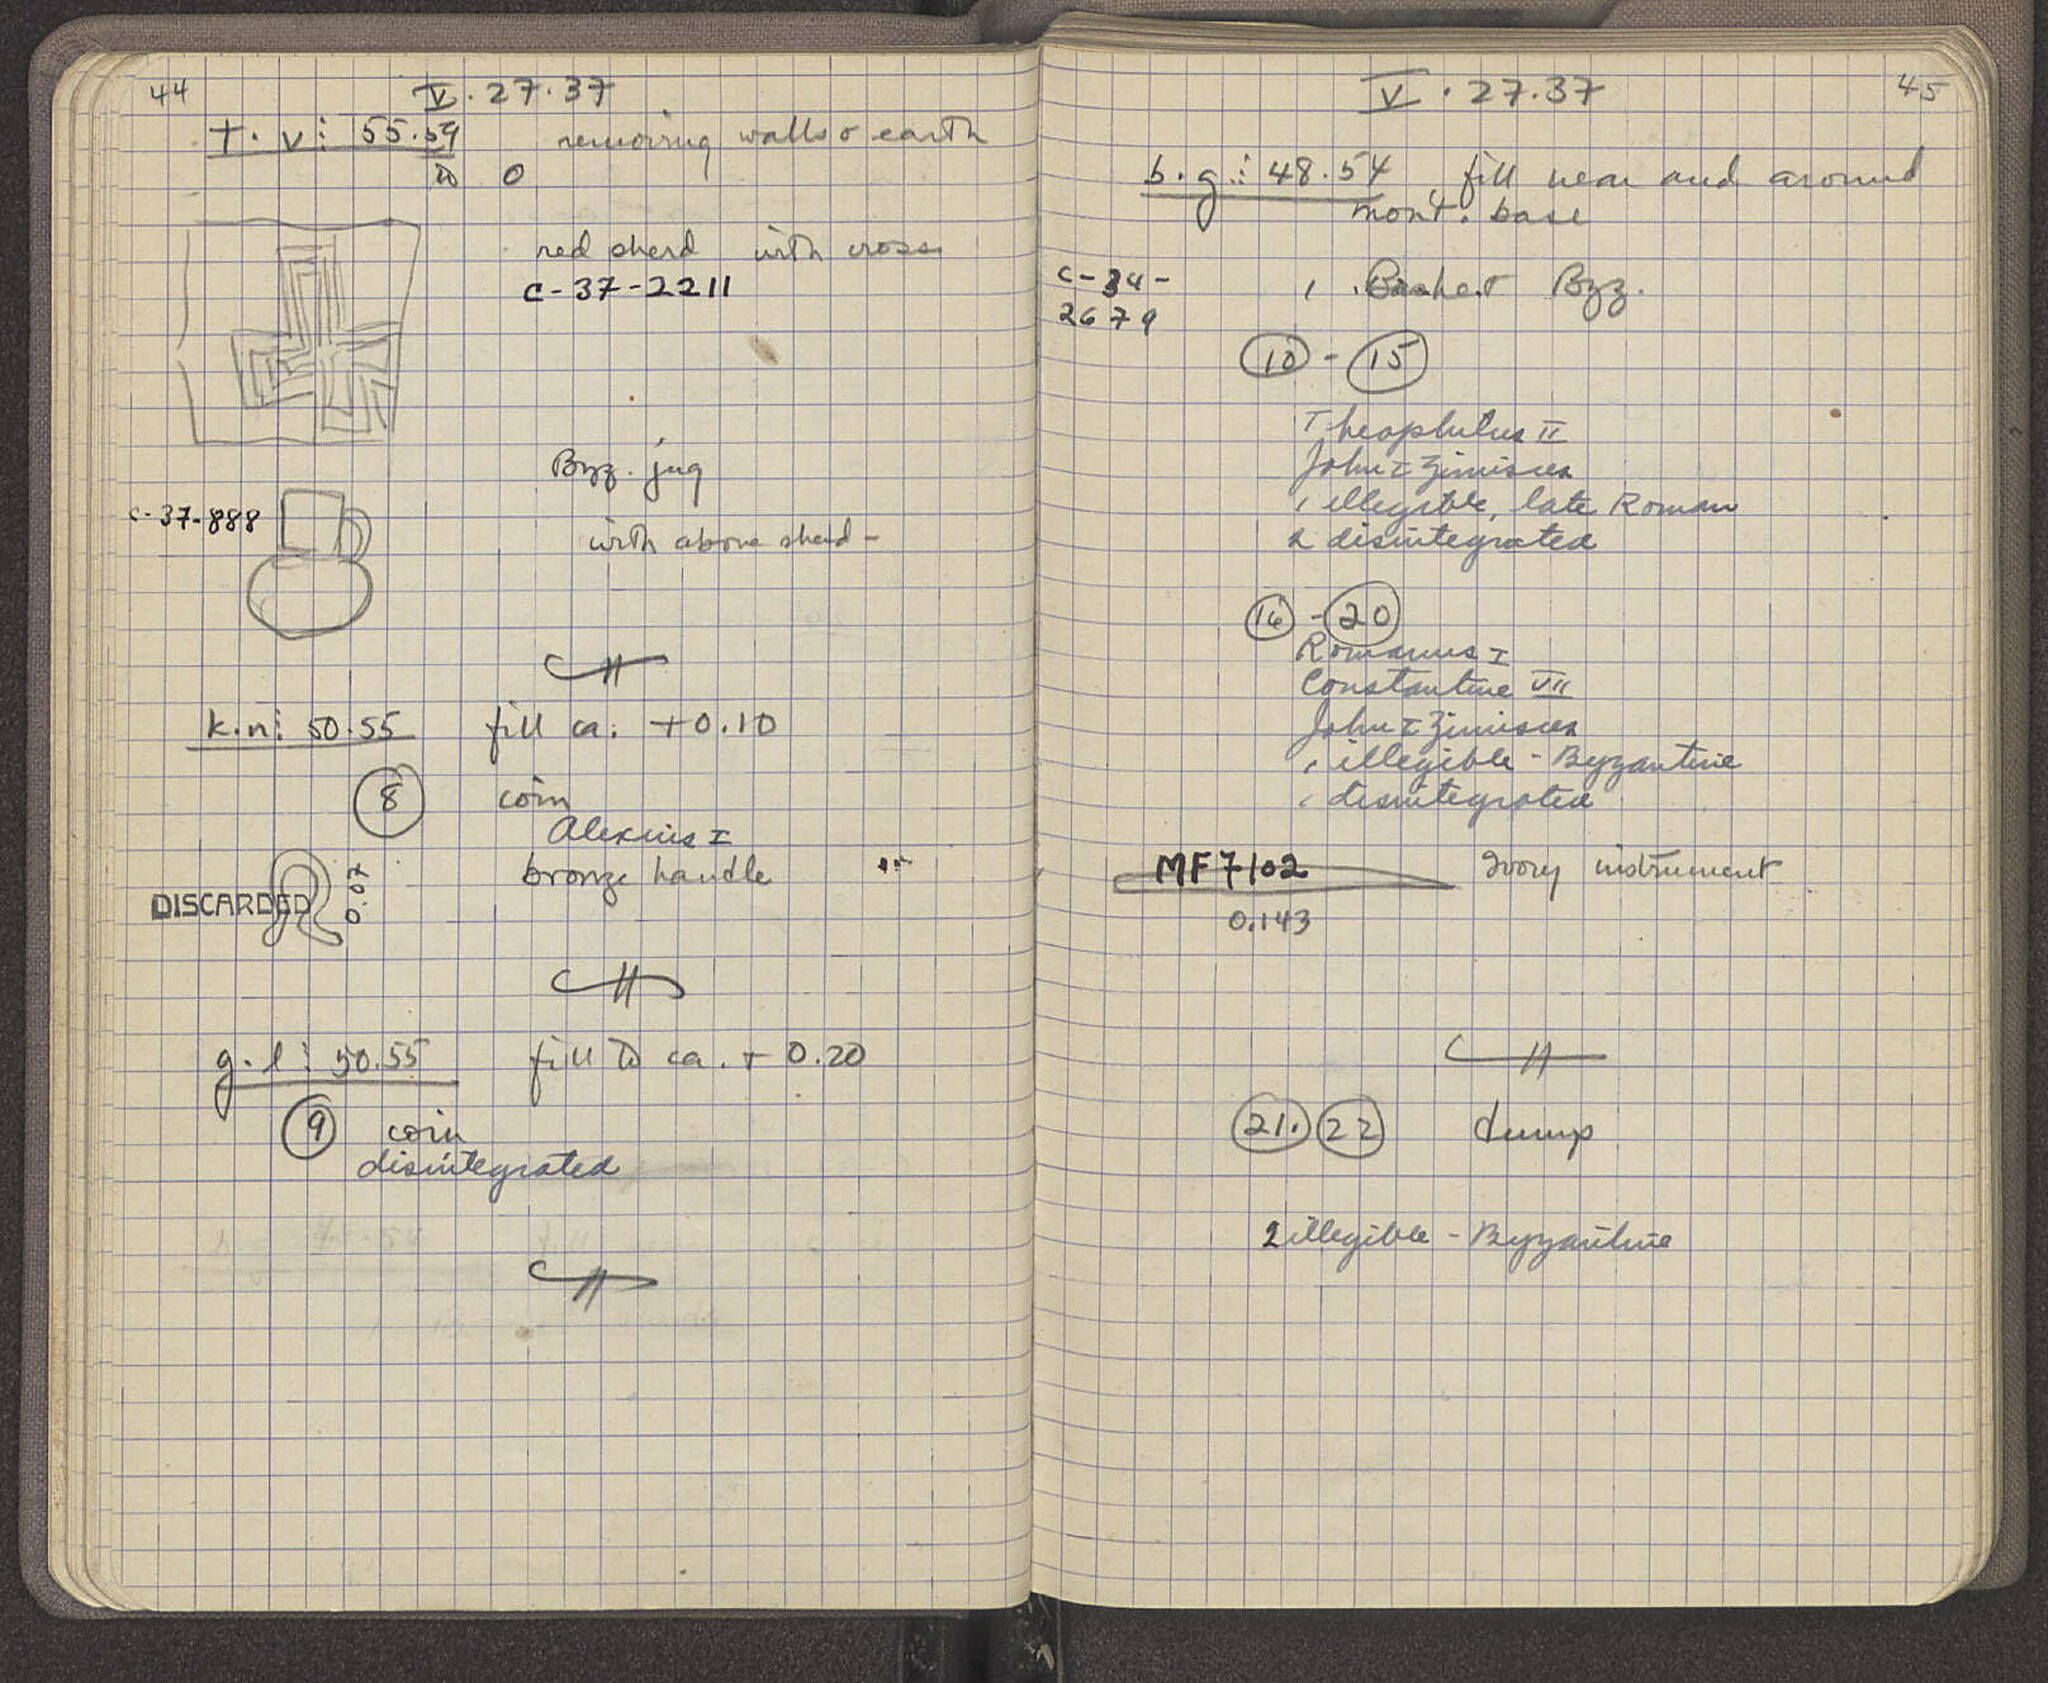 44
V. 27. 37
t. v: 55.59 removing walls & earth
to 0
red sherd with cross
c-37-2211
Byz. jug
c-37-888
with above sherd -
k.n: 50.55 fill ca. +0.10
8 coin
Alexius I
bronze handle
DISCARDED 0.07
g.l: 50.55 fill to ca. + 0.20
9 coin
disintegrated
V. 27. 37
45
b.g.: 48.54 fill near and around
mont. base
c-34- 1 Basket Byz.
2679
10 - 15
Theophilus II
John I Zimisces
1 illegible, late Roman
2 disintegrated
16 - 20
Romanus I
Constantine VII
John I Zimisces
1 illegible - Byzantine
1 disintegrated
MF7102 Ivory instrument
0.143
21. 22 dump
2 illegible - Byzantine